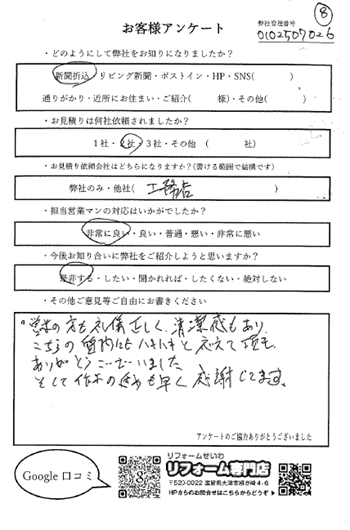 ⑧
お客様アンケート
弊社管理番号
0102507026
・どのようにして弊社をお知りになりましたか?
新聞折込・リビング新聞・ポストイン・HP・SNS( )
通りがかり・近所にお住まい・ご紹介( 様)・その他( )
・お見積りは何社依頼されましたか?
1社・2社・3社・その他 ( 社)
・お見積り依頼会社はどちらになりますか?(書ける範囲で結構です)
弊社のみ・他社( 工務店 )
・担当営業マンの対応はいかがでしたか?
非常に良い・良い・普通・悪い・非常に悪い
・今後お知り合いに弊社をご紹介しようと思いますか?
是非する・したい・聞かれれば・したくない・絶対しない
・その他ご意見等ご自由にお書きください
営業の方も礼儀正しく、清潔感もあり、
こちらの質問にもハキハキと応えて頂き、
ありがとうございました
そして作業の進みも早く感謝してます。
アンケートのご協力ありがとうございました
Google 口コミ
リフォームせいわ
リフォーム専門店
〒520-0022 滋賀県大津市柳が崎4-6
HPからのお問合せはこちらからどうぞ